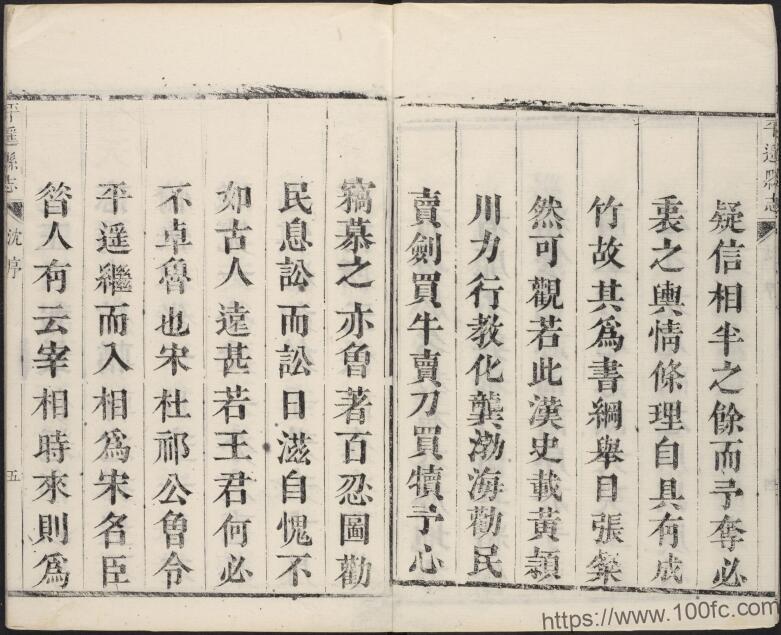 平遥縣志
疑信相半之餘而予奪必
衷之輿情條理自具有成
竹故其為書綱舉目張粲
然可觀若此漢史載黄穎
川力行教化龔渤海勸民
賣劍買牛賣刀買犢予心
竊慕之亦魯著百忍圖勸
民息訟而訟日滋自愧不
如古人遠甚若王君何必
不卓魯也宋杜祁公魯令
平遥繼而入相為宋名臣
昝人有云宰相時來則為
平遥縣志
沈序
五
https://www.100fc.com